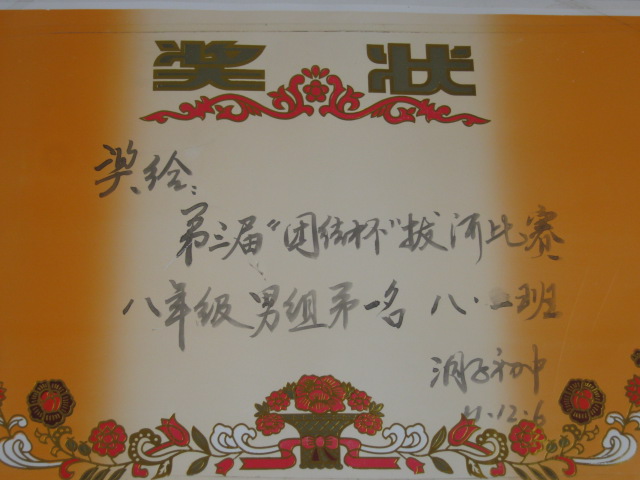 奖状
奖给:
第三届“团结杯”拔河比赛
八年级男组第一名 八·二班
初中
11.12.6